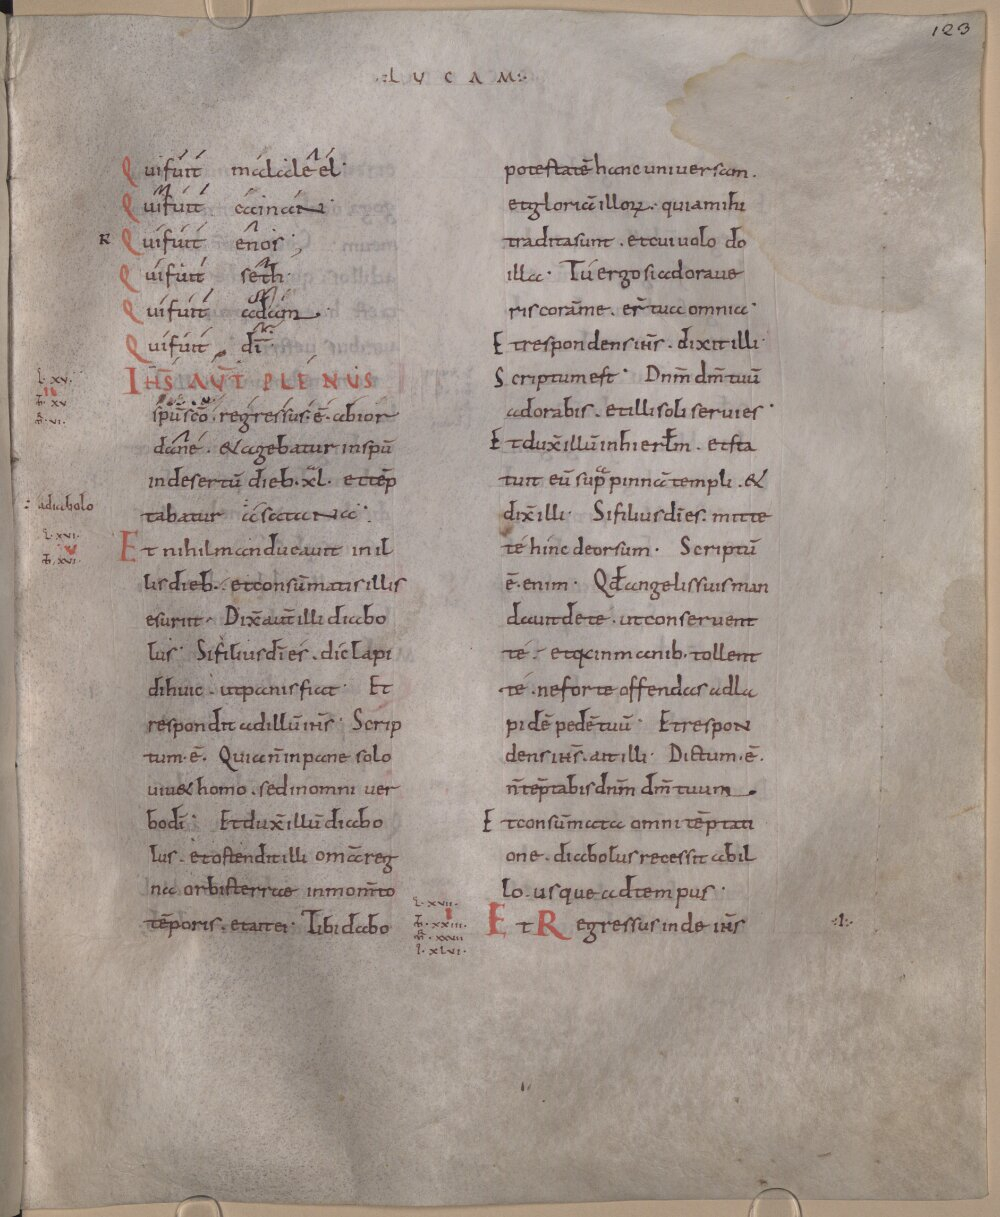 123
·:L V C A M:·
Qui fuit malaleel·
Qui fuit cainan
R Qui fuit enos;
Qui fuit seth·
Qui fuit adam.
Qui fuit dī·
L·XV· IHS AVT̄ PLENUS
M̄·XV
sp̄u sc̄o· regressus·ē· abior
dane· & agebatur in sp̄u
in desertū dieb·xl̄· et tēp
: adiabolo
tabatur a satana:·
L·XVI· Et nihil manducauit in il
M̄·XVI·
lis dieb·· et consūmatis illis
esuriit· Dix̄ aut̄ illi diabo
lus· Si filius dī es· dic lapi
di huic· ut panis fiat· Et
respondit ad illū ih̄s· Scrip
tum·ē· Quia n̄ in pane solo
uiu& homo· sed in omni uer
bo dī· Et dux̄ illū diabo
lus· et ostendit illi om̄a reg
na orbis terrae in mom̄to
tēporis· et ait ei· Tibi dabo
potestatē hanc uniuersam·
et gloriā illoꝝ· quia mihi
tradita sunt· et cui uolo do
illa· Tu ergo si adoraue
ris coram me· er̄ tua omnia·
Et respondens ih̄s· dixit illi·
Scriptum est· Dn̄m dm̄ tuū
adorabis· et illi soli seruies·
Et dux̄ illū in hierłm· et sta
tuit eū sup̄ pinnā templi· &
dix̄ illi· Si filius dī es· mitte
te hinc deorsum· Scriptū
ē·enim· Qđ angelis suis man
dauit de te· ut conseruent
te· et qa in manib· tollent
te· ne forte offendas ad la
pidē pedē tuū· Et respon
dens ih̄s· ait illi· Dictum·ē·
n̄ tēptabis dn̄m dm̄ tuum
Et consūmata omni tēptati
one· diabolus recessit ab il
lo· usque ad tempus·
L·XVII·
M̄·XXIII·
Et Regressus inde ih̄s ·:1·
M̄·XXVII
I·XLVI·